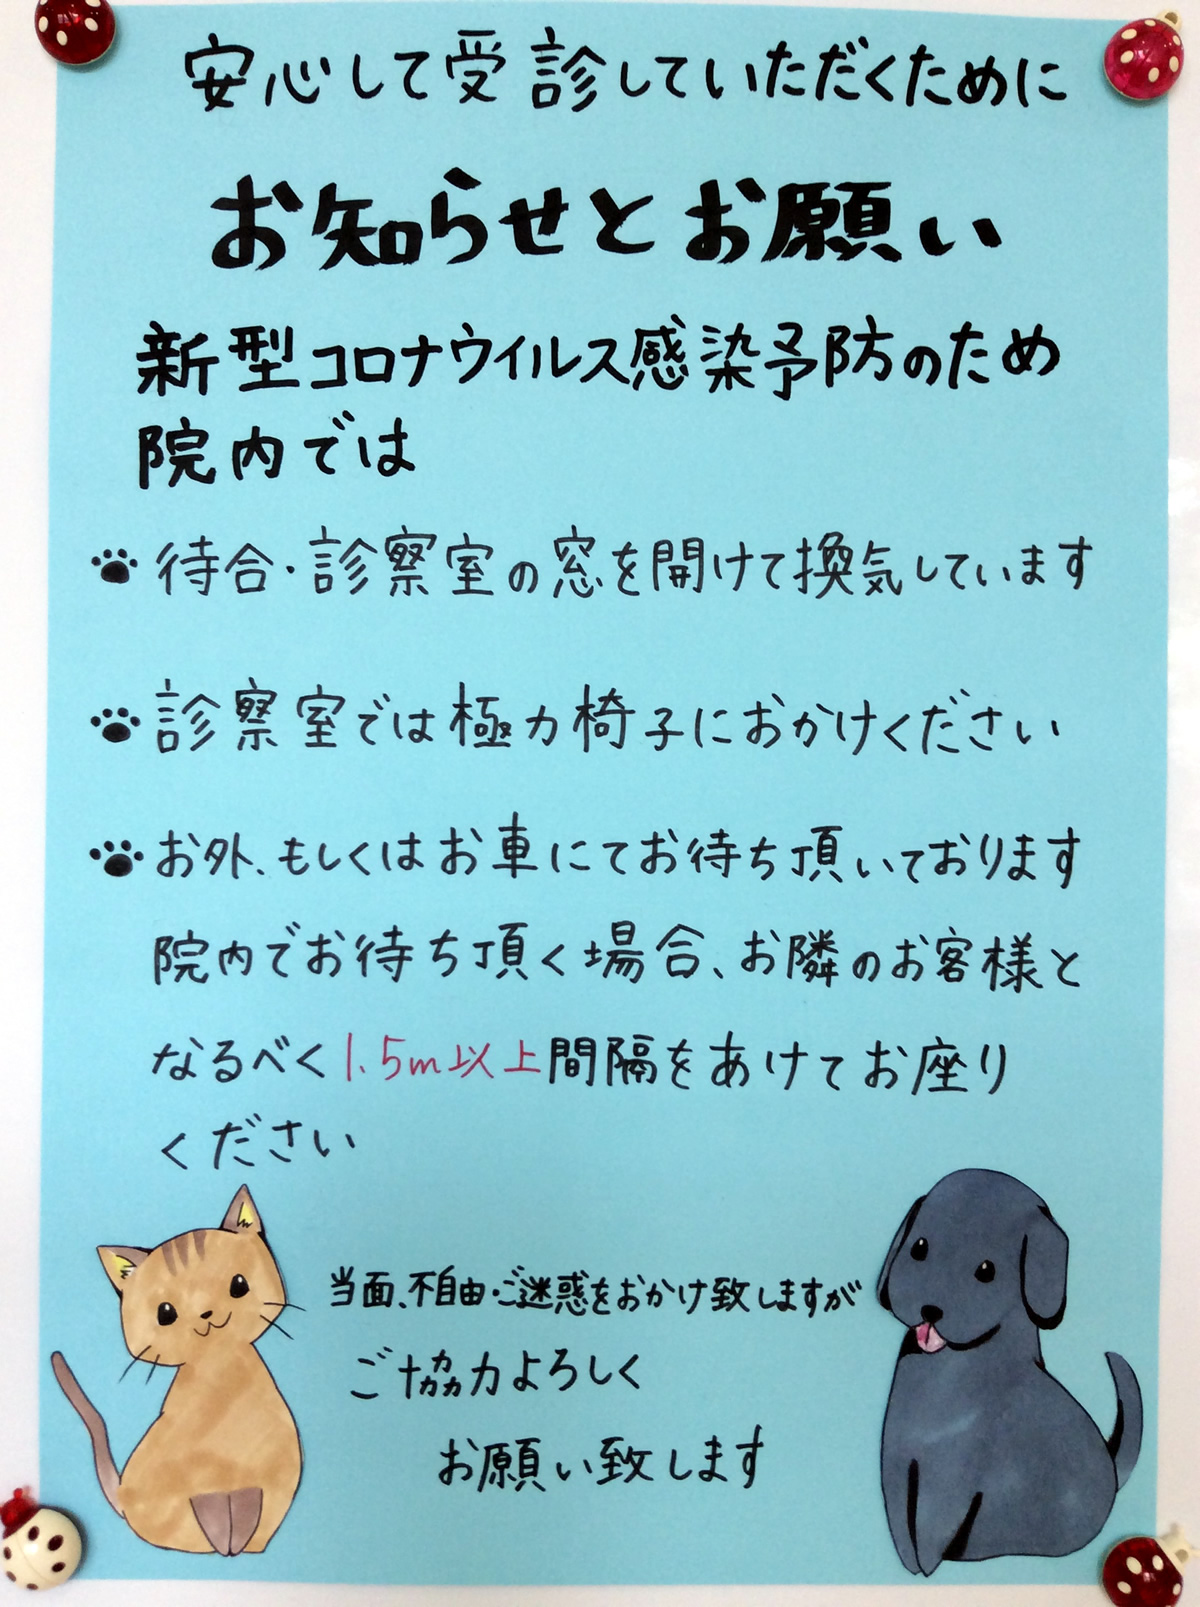 安心して受診していただくために
お知らせとお願い
新型コロナウイルス感染予防のため
院内では
待合・診察室の窓を開けて換気しています
診察室では極力椅子におかけください
お外、もしくはお車にてお待ち頂いております
院内でお待ち頂く場合、お隣のお客様と
なるべく1.5m以上間隔をあけてお座り
ください
当面、不自由・ご迷惑をおかけ致しますが
ご協力よろしく
お願い致します